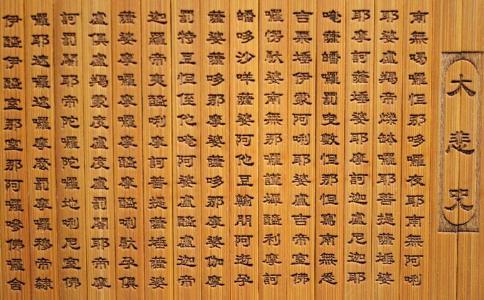 大悲咒
南無喝囉怛那哆囉夜耶南無阿唎
耶婆盧羯帝爍鉢囉耶菩提薩埵婆
耶摩訶薩埵婆耶摩訶迦盧尼迦耶
唵薩皤囉罰曳數怛那怛寫南無悉
吉唎埵伊蒙阿唎耶婆盧吉帝室佛
囉楞馱婆南無那囉謹墀醯利摩訶
皤哆沙咩薩婆阿他豆輸朋阿逝孕
薩婆薩哆那摩婆薩哆那摩婆伽摩
罰特豆怛侄他唵阿婆盧醯盧迦帝
迦羅帝夷醯唎摩訶菩提薩埵薩婆
薩婆摩囉摩囉摩醯摩醯唎馱孕俱
盧俱盧羯蒙度盧度盧罰闍耶帝摩
訶罰闍耶帝陀囉陀囉地唎尼室佛
囉耶遮囉遮囉摩摩罰摩囉穆帝囇
伊醯伊醯室那室那阿囉嘇佛囉舍